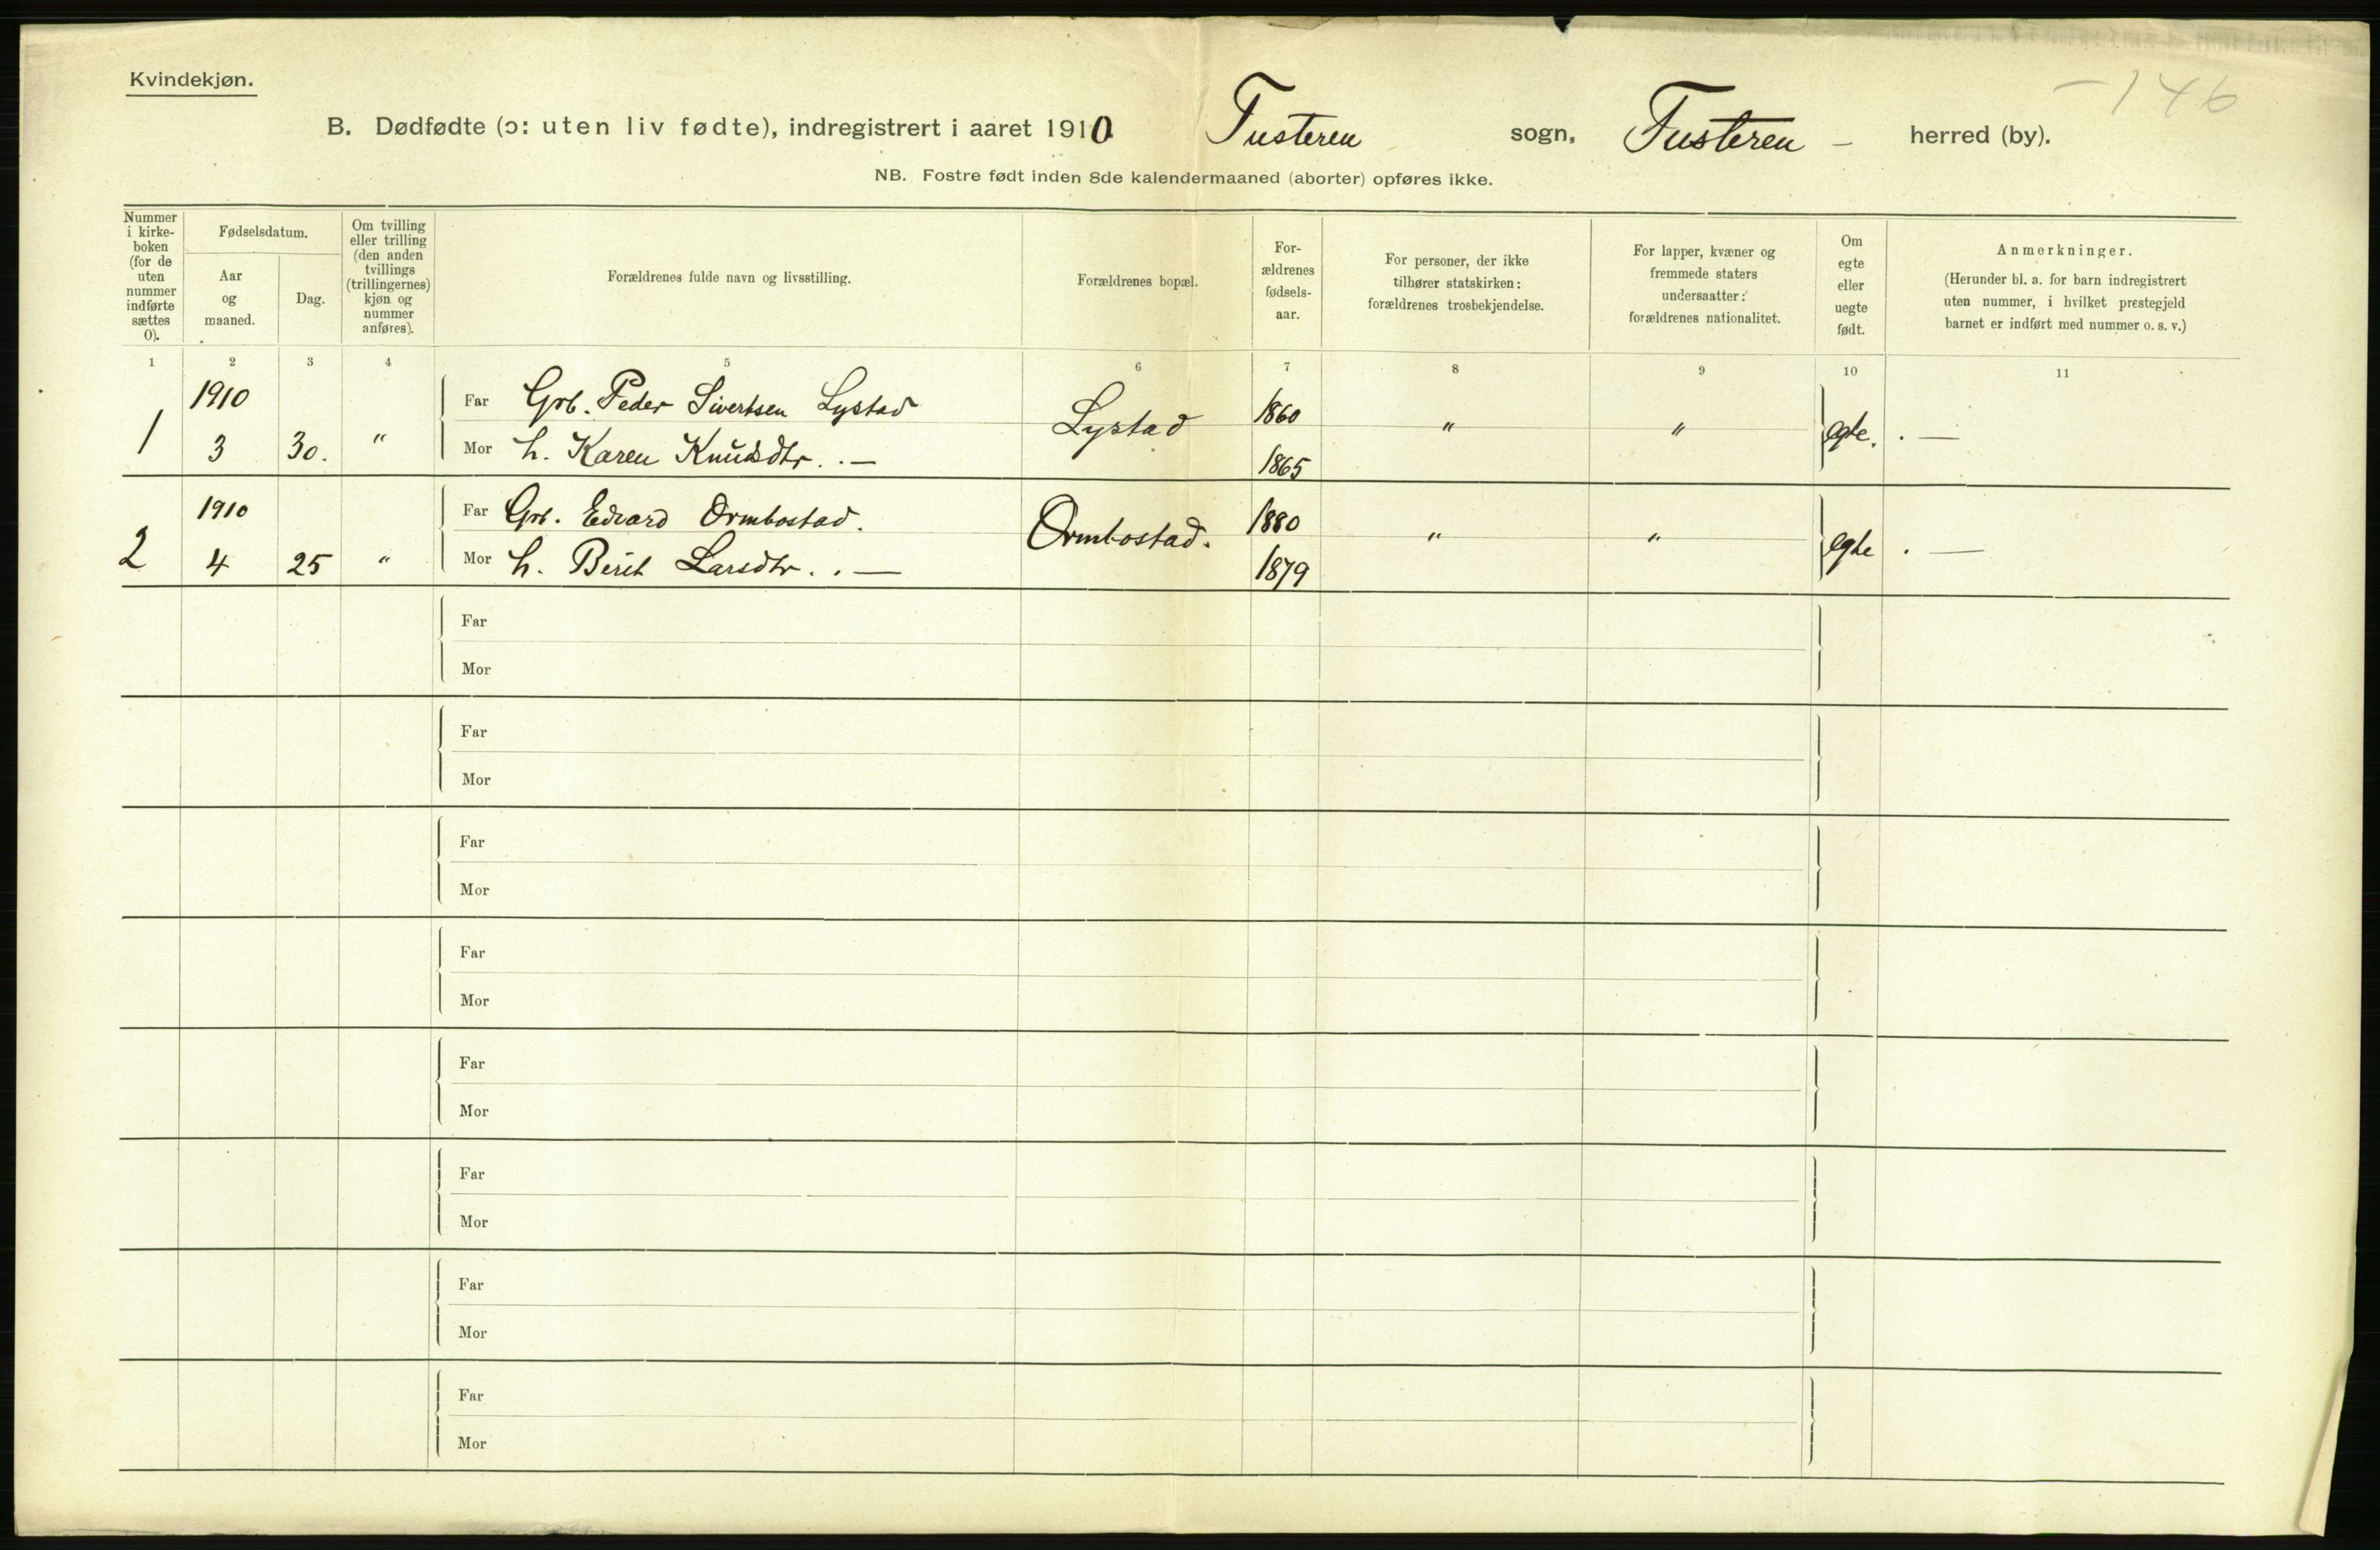 Kvindekjøn.
-146
B. Dødfødte (ɔ: uten liv fødte), indregistrert i aaret 1910 Tusteren sogn, Tusteren - herred (by).
NB. Fostre født inden 8de kalendermaaned (aborter) opføres ikke.
Nummer i kirke-boken (for de uten nummer indførte sættes 0).
Fødselsdatum.
Aar og maaned.
Dag.
Om tvilling eller trilling (den anden tvillings (trillingernes) kjøn og nummer anføres).
Forældrenes fulde navn og livsstilling.
Forældrenes bopæl.
For-ældrenes fødsels-aar.
For personer, der ikke tilhører statskirken: forældrenes trosbekjendelse.
For lapper, kvæner og fremmede staters undersaatter: forældrenes nationalitet.
Om egte eller uegte født.
Anmerkninger.
(Herunder bl. a. for barn indregistrert uten nummer, i hvilket prestegjeld barnet er indført med nummer o. s. v.)
1 2 3 4 5 6 7 8 9 10 11
1910 Far Grb. Peder Sivertsen Lystad Lystad 1860
1 3 30. " Mor h. Karen Knudsdtr. . — 1865 " " egte. . —
1910 Far Grb. Edvard Ormbostad. Ormbostad. 1880
2 4 25 " Mor h. Berit Larsdtr. . — 1879 " " egte . —
Far
Mor
Far
Mor
Far
Mor
Far
Mor
Far
Mor
Far
Mor
Far
Mor
Far
Mor